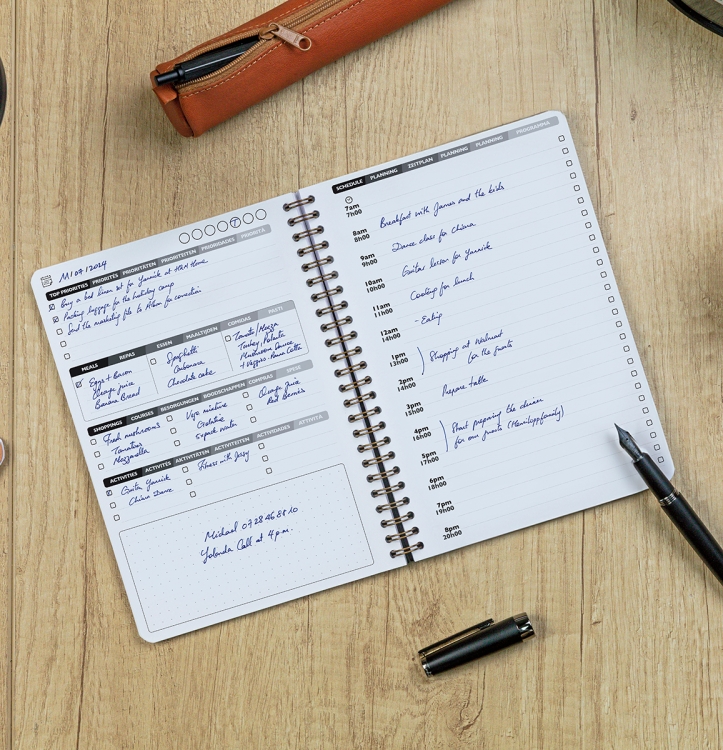 M107/2024
T
TOP PRIORITIES PRIORITÉS PRIORITÄTEN PRIORITEITEN PRIORIDADES PRIORITÀ
Buy a bed linen set for Yannick at H&M Home
Packing luggage for the holiday camp
Send the marketing file to Alban for correction
MEALS REPAS ESSEN MAALTIJDEN COMIDAS PASTI
Eggs + Bacon
Orange juice
Banana Bread
Spaghetti
Carbonara
Chocolate cake
Tomato/Mozza
Turkey, Potato
Mushroom Sauce
+ Veggies. Panna Cotta
SHOPPINGS COURSES BESORGUNGEN BOODSCHAPPEN COMPRAS SPESE
Fresh mushrooms
Tomatoes
Mozzarella
Vege
Gelatine
Orange Juice
Red Berries
ACTIVITIES ACTIVITÉS AKTIVITÄTEN ACTIVITEITEN ACTIVIDADES ATTIVITÀ
Guitar Yannick
Chiara Dance
fitness with Jessy
Michael 0728468810
Yolanda Call at 4 p.m.
SCHEDULE PLANNING ZEITPLAN PLANNING PLANNING PROGRAMMA
7am
7h00
Breakfast with James and the kids
8am
8h00
Dance class for Chiara
9am
9h00
Guitar lesson for Yannick
10am
10h00
Cooking for lunch
11am
11h00
- Eating
12am
14h00
Shopping at Walmart
for the guests
1pm
13h00
2pm
14h00
Prepare table
3pm
15h00
Start preparing the dinner
for our guests (Hamiltopffamily)
4pm
16h00
5pm
17h00
6pm
18h00
7pm
19h00
8pm
20h00